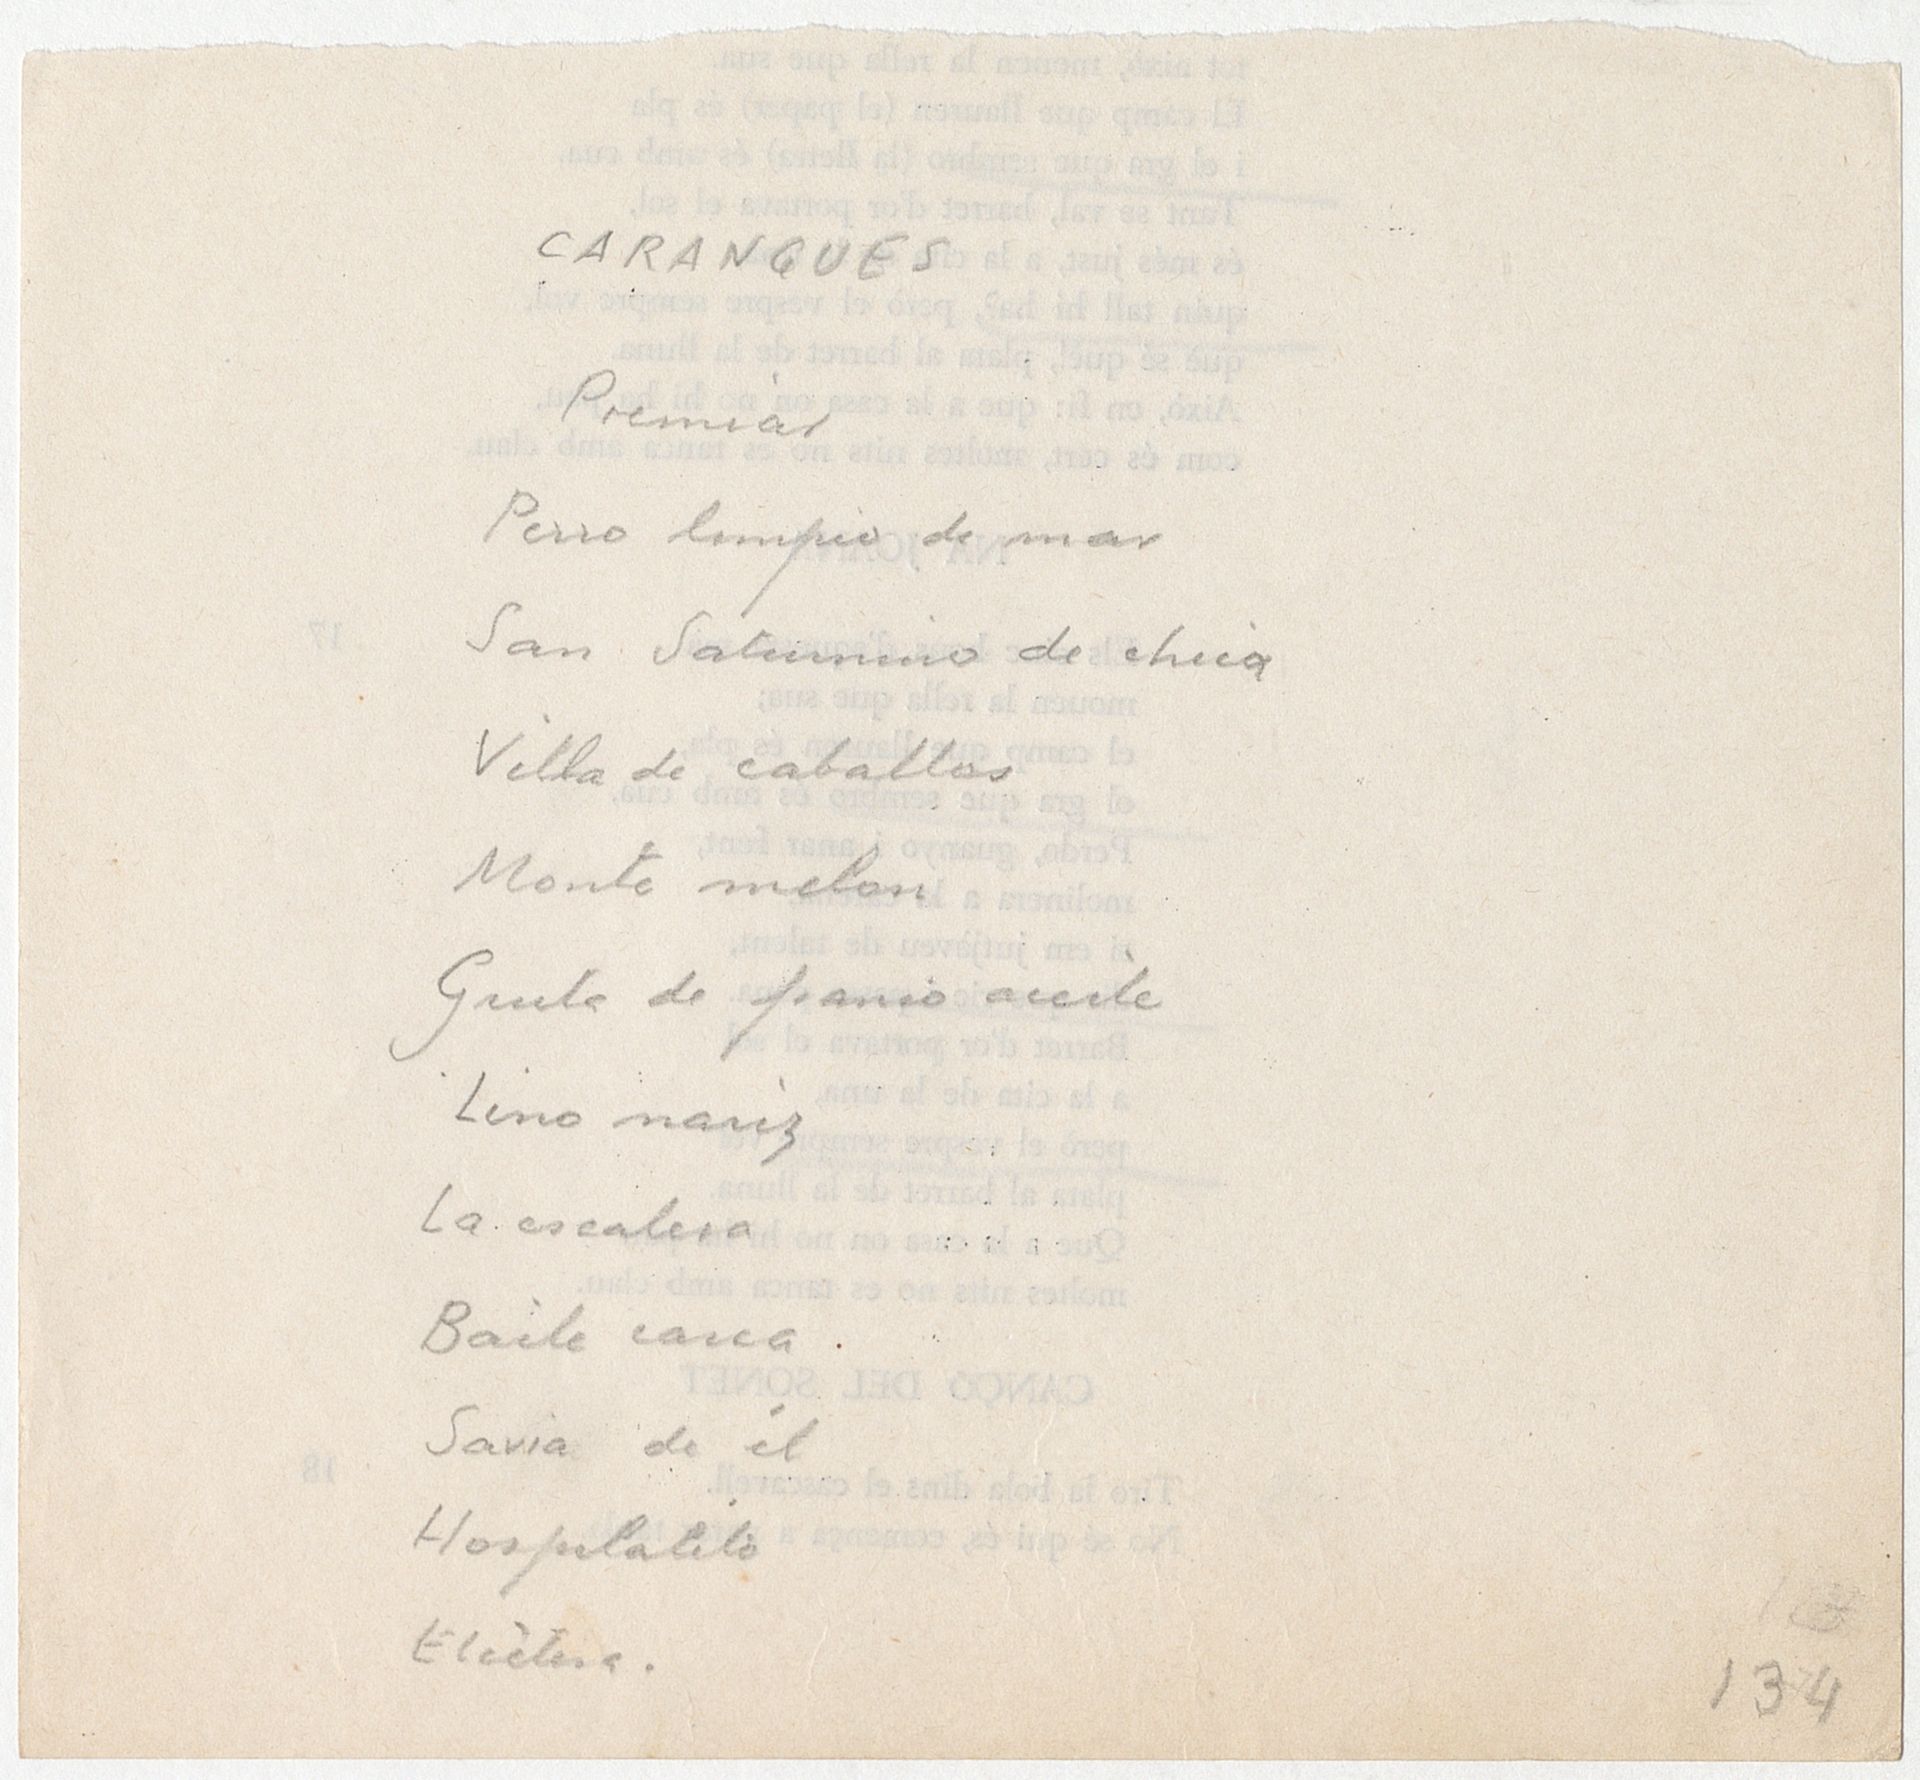 CARANQUES
Premiar
Perro limpio de mar
San Saturnino de chica
Villa de caballos
Monte melon
Gruta de panio aceite
Lino nariz
La escalera
Baile carca.
Savia de él
Hospitalito
Etcètera.
134